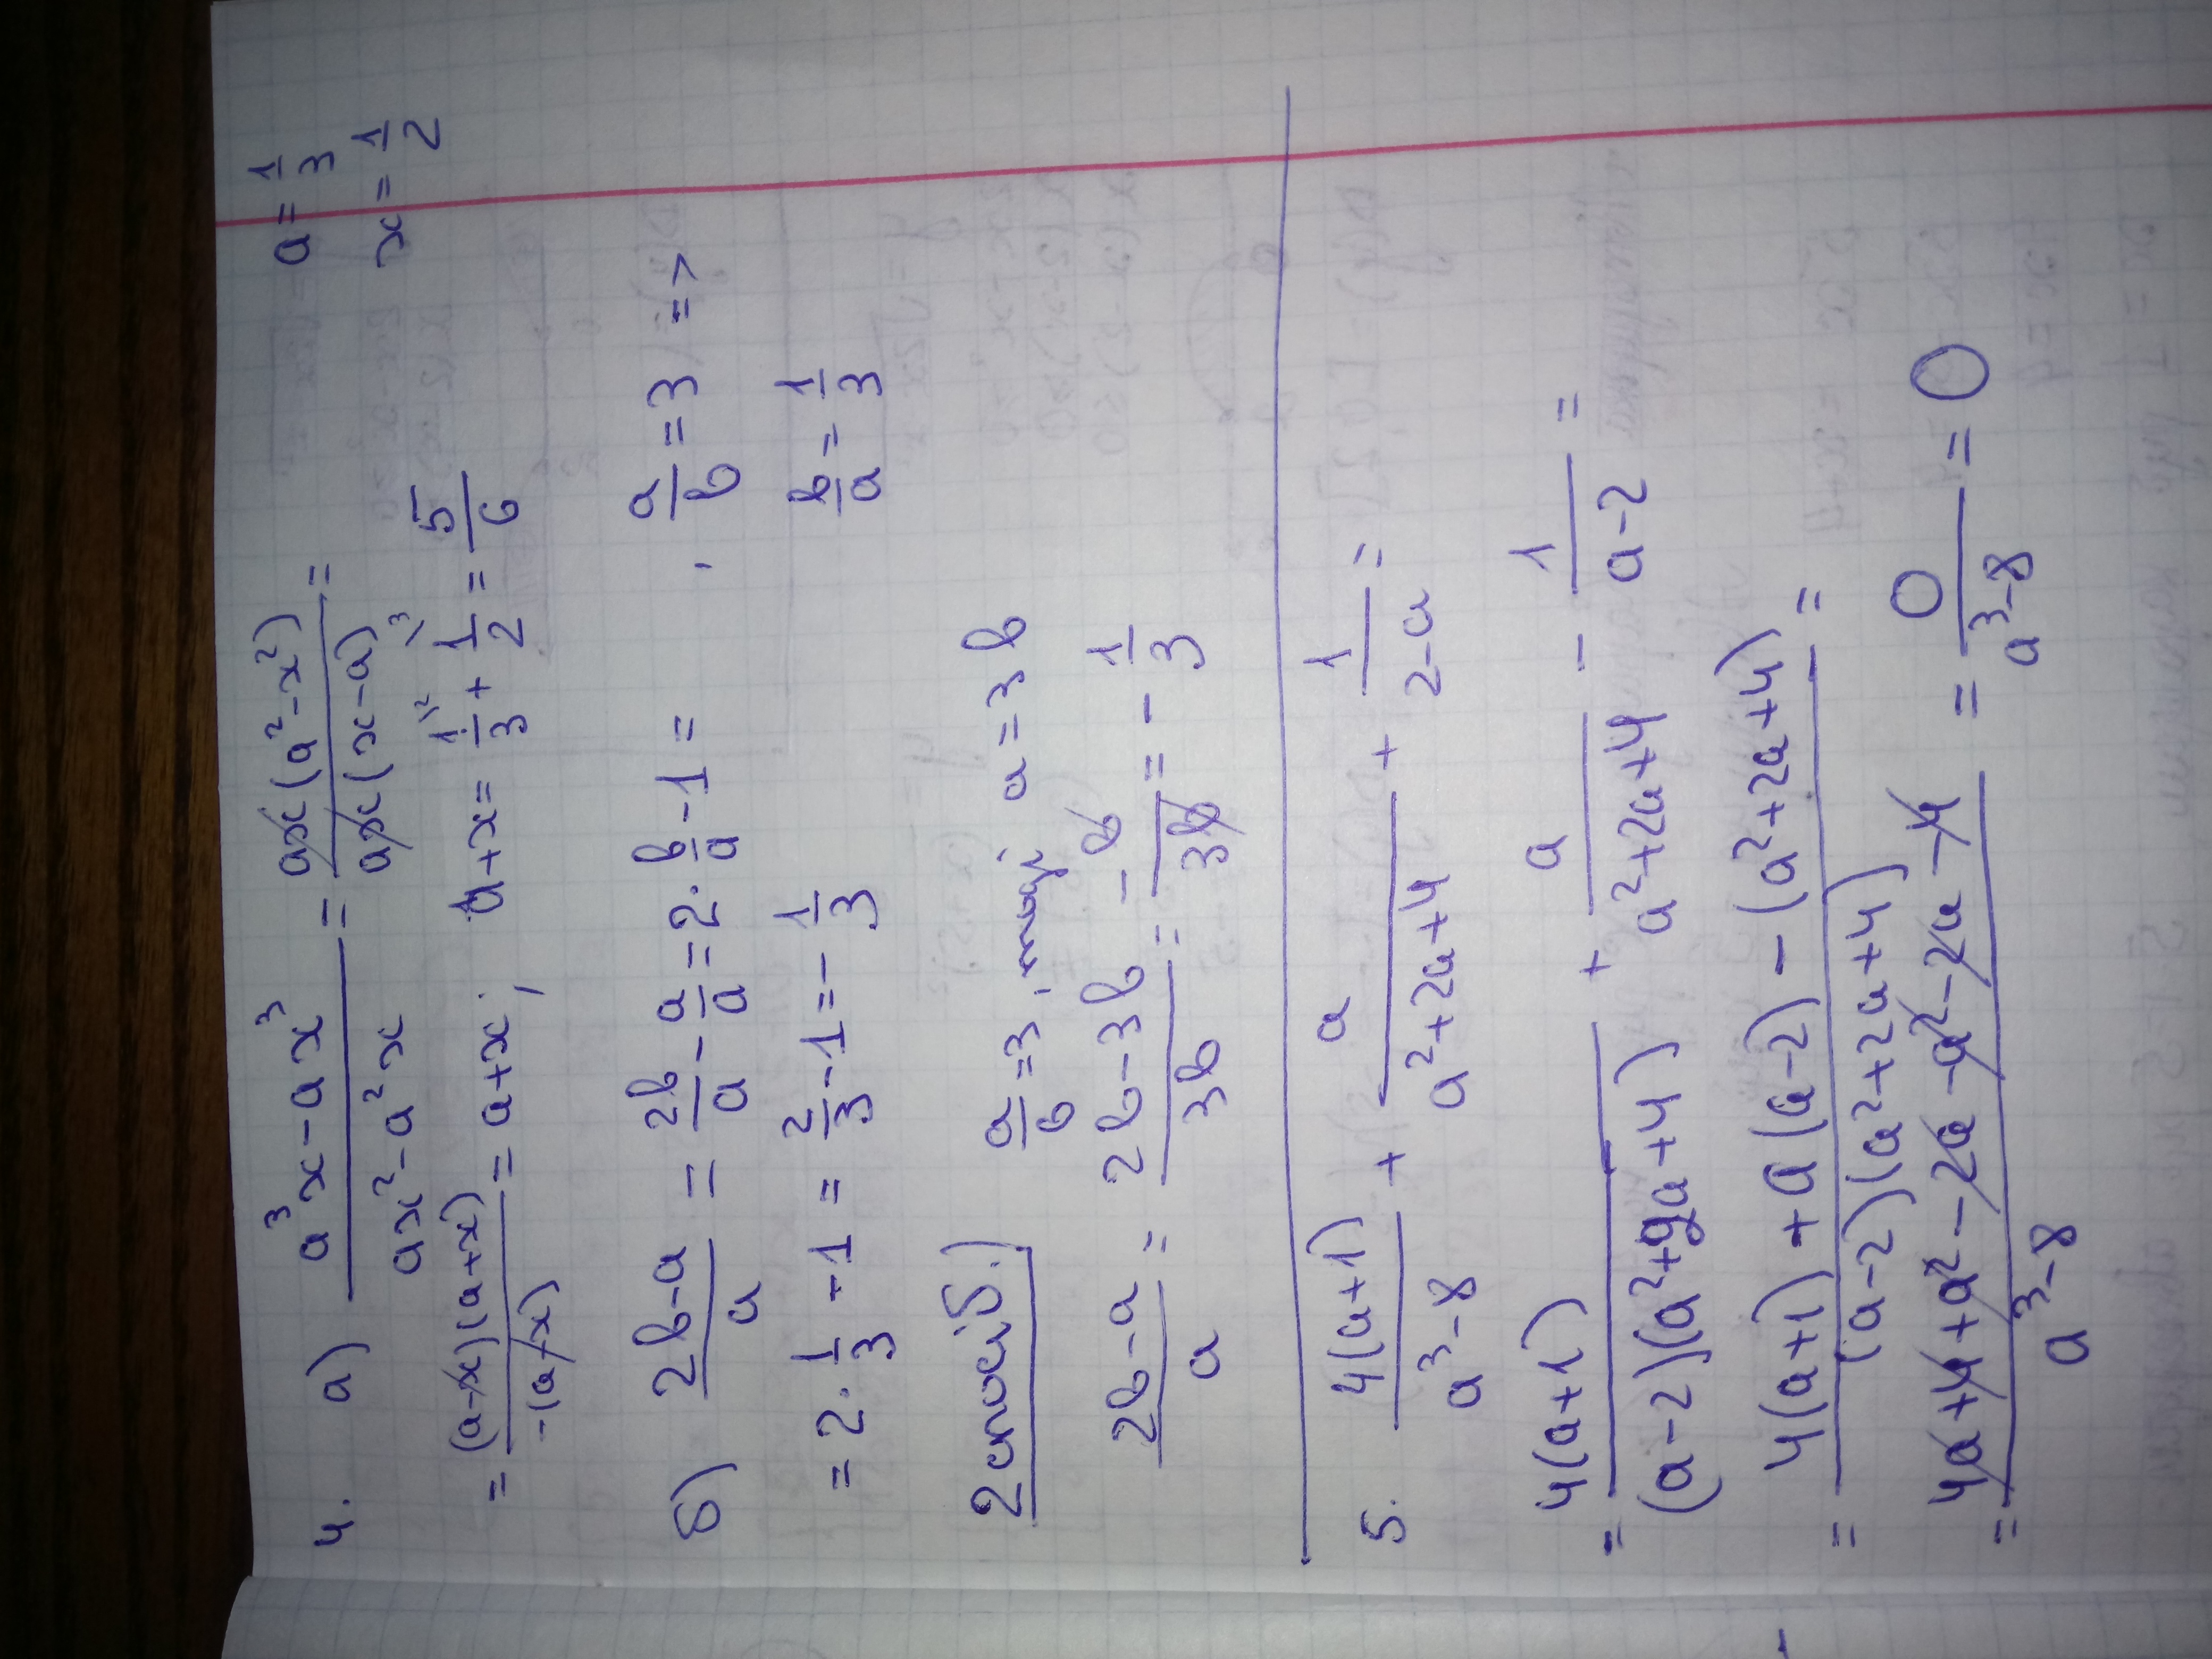 4. а) (a³x - ax³)/(ax² - a²x) = (ax(a² - x²))/(ax(x - a)) = a = 1/3
= ((a-x)(a+x))/(-(a-x)) = a+x ; a+x = 1/3 \² + 1/2 \³ = 5/6 x = 1/2
б) (2b-a)/a = 2b/a - a/a = 2·b/a - 1 = , a/b = 3 =>
= 2·1/3 - 1 = 2/3 - 1 = -1/3 b/a = 1/3
2 спосіб.) a/b = 3, тоді a = 3b
(2b-a)/a = (2b-3b)/3b = -b/3b = -1/3
5. 4(a+1)/(a³-8) + a/(a²+2a+4) + 1/(2-a) =
= 4(a+1)/((a-2)(a²+2a+4)) + a/(a²+2a+4) - 1/(a-2) =
= (4(a+1) + a(a-2) - (a²+2a+4))/((a-2)(a²+2a+4)) =
= (4a+4+a²-2a-a²-2a-4)/(a³-8) = 0/(a³-8) = 0